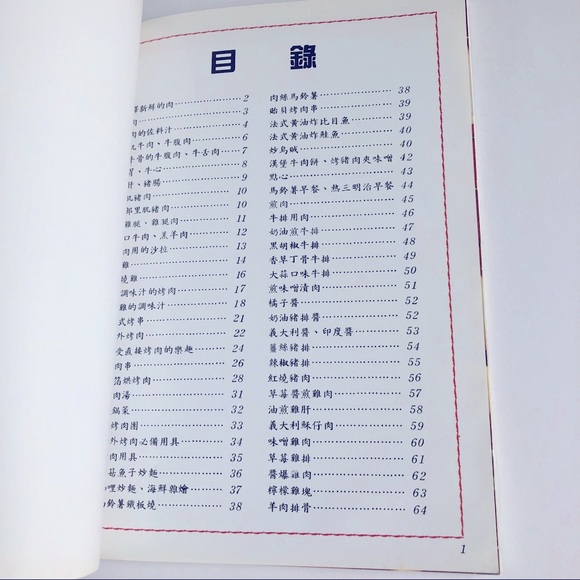 目錄
擇新鮮的肉 2
肉 3
肉的佐料汁 4
肌牛肉、牛腹肉 6
牛骨的牛腹肉、牛舌肉 7
胃、牛心 8
肝、豬腸 9
肌豬肉 10
部里肌豬肉 10
雞腿、雞腿肉 11
口牛肉、羔羊肉 12
肉用的沙拉 13
雞 14
燒雞 16
調味汁的烤肉 17
雞的調味汁 18
式烤串 21
外烤肉 22
受直接烤肉的樂趣 24
肉串 26
箔烘烤肉 28
肉湯 31
鍋菜 32
烤肉團 33
外烤肉必備用具 34
肉用具 35
菇魚子炒麵 36
哩炒麵、海鮮雜燴 37
鈴薯鐵板燒 38
肉絲馬鈴薯 38
貽貝烤肉串 39
法式黃油炸比目魚 39
法式黃油炸鮭魚 40
炒烏賊 40
漢堡牛肉餅、烤豬肉夾味噌 42
點心 43
馬鈴薯早餐、熱三明治早餐 44
煎肉 45
牛排用肉 46
奶油煎牛排 47
黑胡椒牛排 48
香草丁骨牛排 49
大蒜口味牛排 50
煎味噌漬肉 51
橘子醬 52
奶油豬排醬 52
義大利醬、印度醬 53
薑絲豬排 54
辣椒豬排 55
紅燒豬肉 56
草莓醬煎雞肉 57
油煎雞肝 58
義大利酥仔肉 59
味噌雞肉 60
草莓雞排 61
醬爆雞肉 62
檸檬雞塊 63
羊肉排骨 64
1